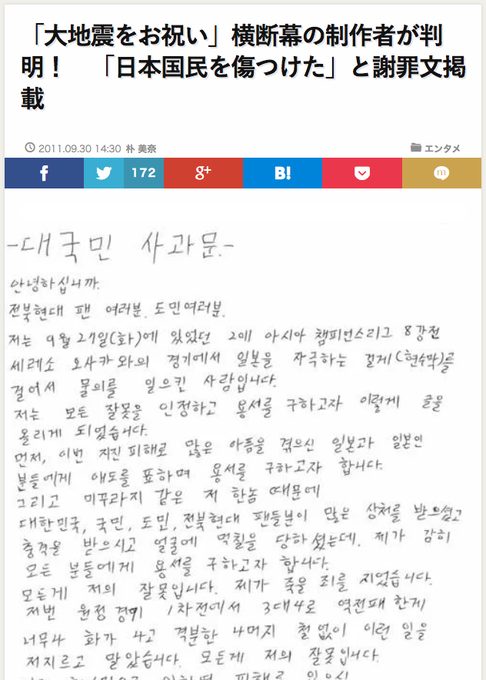 「大地震をお祝い」横断幕の制作者が判
明！　「日本国民を傷つけた」と謝罪文掲
載
2011.09.30 14:30 朴 美奈
エンタメ
f
172
g+
B!
m
-대국민 사과문.-
안녕하십니까.
전북현대 팬 여러분. 도민여러분.
저는 9월 27일(화)에 있었던 2011 아시아 챔피언스리그 8강전
세레소 오사카와의 경기에서 일본을 자극하는 걸게(현수막)를
걸어서 물의를 일으킨 사람입니다.
저는 모든 잘못을 인정하고 용서를 구하고자 이렇게 글을
올리게 되었습니다.
먼저, 이번 지진피해로 많은 아픔을 겪으신 일본과 일본인
분들에게 애도를 표하며 용서를 구하고자 합니다.
그리고 미꾸라지 같은 저 한놈 때문에
대한민국, 국민, 도민, 전북현대 팬들분이 많은 상처를 받으셨고
충격을 받으시고 얼굴에 먹칠을 당하셨는데, 제가 감히
모든 분들에게 용서를 구하고자 합니다.
모든게 저의 잘못입니다. 제가 죽을 죄를 지었습니다.
저번 원정 경기 1차전에서 3대4로 역전패 한게
너무나 화가 나고 격분한 나머지 철없이 이런 일을
저지르고 말았습니다. 모든게 저의 잘못입니다.